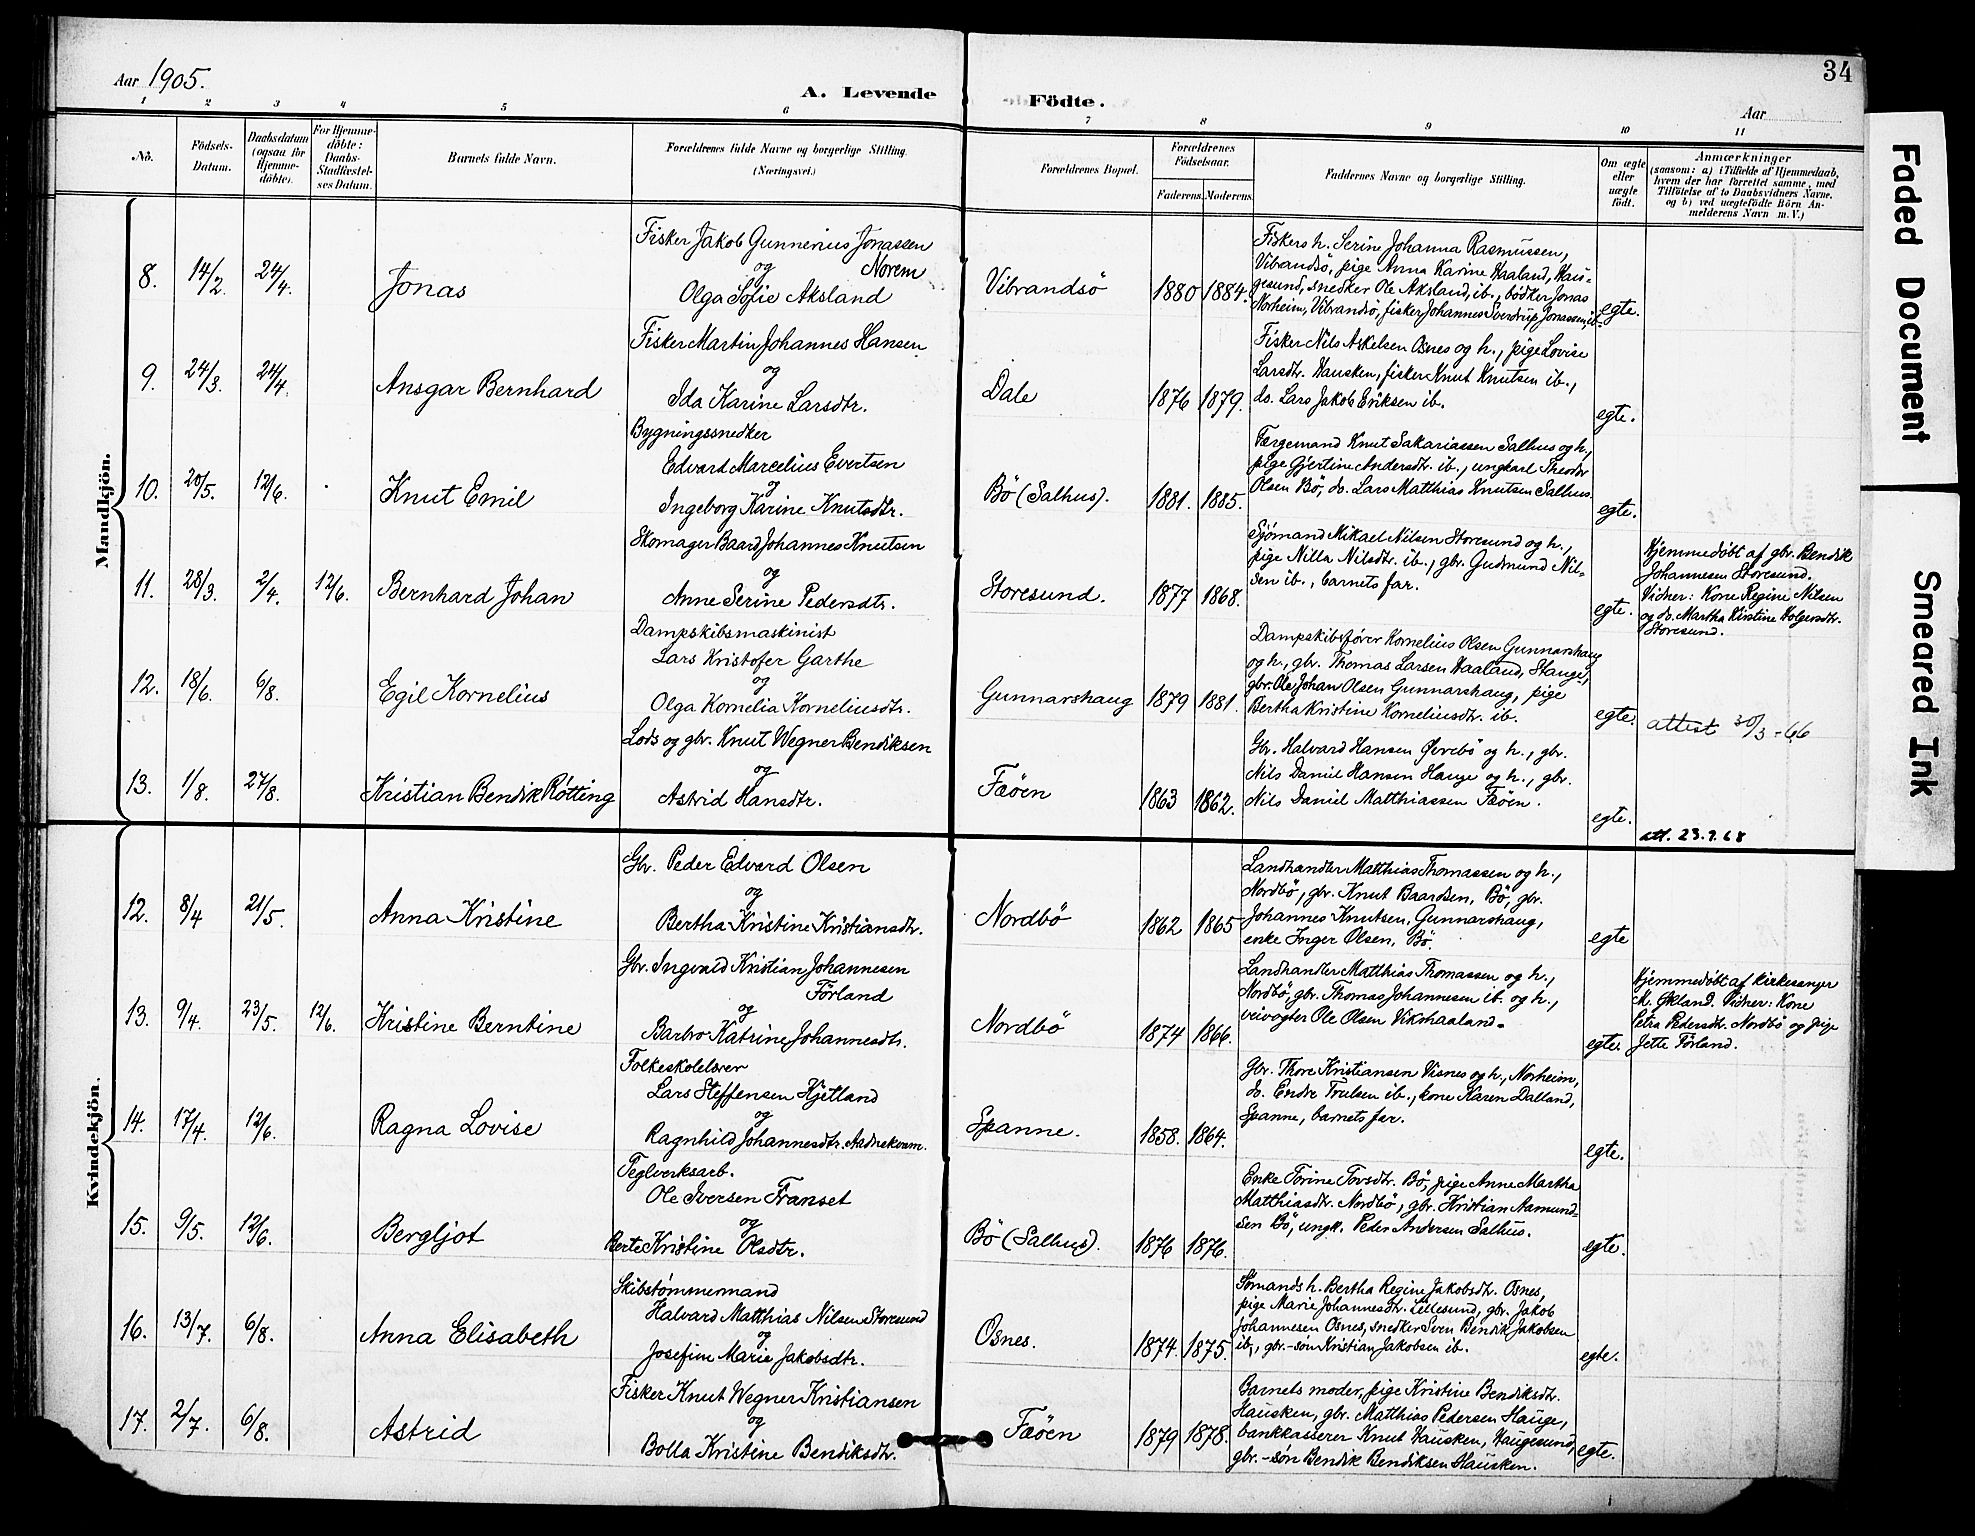 34
Aar 1905.
A. Levende Födte.
Aar
1 2 3 4 5 6 7 8 9 10 11
No.
Födsels-
Datum.
Daabsdatum
(ogsaa for
Hjemme-
döbte).
For Hjemme-
döbte:
Daabs-
Stadfæstel-
ses Datum.
Barnets fulde Navn.
Forældrenes fulde Navne og borgerlige Stilling
(Næringsvei.)
Forældrenes Bopæl.
Forældrenes
Födselsaar.
Faderens. Moderens.
Faddernes Navne og borgerlige Stilling.
Om ægte
eller
uægte
födt.
Anmærkninger
(saasom: a) i Tilfælde af Hjemmedaab,
hvem der har forrettet samme, med
Tilföielse af to Daabsvidners Navne,
og b) ved uægtefödte Börn An-
melderens Navn m. V.)
Mandkjön.
8. 14/2. 24/4. Jonas
Fisker Jakob Gunnerius Jonassen
Norem
og
Olga Sofie Aksland
Vibrandsö 1880 1884.
Fiskers h. Serine Johanna Rasmussen,
Vibrandsö, pige Anna Karine Haaland, Hau-
gesund, snedker Ole Aksland, ib., bödker Jonas
Norheim, Vibrandsö, fisker Johannes Sverdrup Jonassen, ib.
egte.
9. 24/3. 24/4. Ansgar Bernhard
Fisker Martin Johannes Hansen
og
Ida Karine Larsdtr.
Dale 1876 1879.
Fisker Nils Askelsen Osnes og h., pige Lovise
Larsdtr. Hausken, fisker Knut Knutsen ib.,
do. Lars Jakob Eriksen ib.
egte.
10. 20/5. 12/6. Knut Emil
Bygningssnedker
Edvard Marcelius Evertsen
og
Ingeborg Karine Knutsdtr.
Bö (Salhus). 1881. 1885.
Færgemand Knut Sakariassen Salhus og h.,
pige Gjertine Andersdtr. ib., ungkarl Theodor
Olsen Bö, do. Lars Matthias Knutsen Salhus.
egte.
11. 28/3. 2/4. 12/6. Bernhard Johan
Skomager Baard Johannes Knutsen
og
Anne Serine Pedersdtr.
Storesund. 1877 1868.
Sjömand Mikael Nilsen Storesund og h.,
pige Nilla Nilsdtr. ib., gbr. Gudmund Nil-
sen ib., barnets far.
egte.
Hjemmedöbt af gbr. Bendik
Johannesen Storesund.
Vidner: Kone Regine Nilsen
og do. Martha Kirstine Holgersdtr.
Storesund.
12. 18/6. 6/8. Egil Kornelius
Dampskibsmaskinist
Lars Kristofer Garthe
og
Olga Kornelia Korneliusdtr.
Gunnarshaug 1879 1881.
Dampskibsförer Kornelius Olsen Gunnarshaug
og h., gbr. Thomas Larsen Haaland, Stange,
gbr. Ole Johan Olsen Gunnarshaug, pige
Bertha Kristine Korneliusdtr. ib.
egte.
attest 30/3 - 66
13. 1/8. 27/8. Kristian Bendik Rötting
Lods og gbr. Knut Wegner Bendiksen
og
Astrid Hansdtr.
Fæöen 1863 1862.
Gbr. Halvard Hansen Övrebö og h., gbr.
Nils Daniel Hansen Hauge og h., gbr.
Nils Daniel Matthiassen Fæöen.
egte.
att. 23.9.68
Kvindekjön.
12. 8/4 21/5. Anna Kristine
Gbr. Peder Edvard Olsen
og
Bertha Kristine Kristiansdtr.
Nordbö 1862 1865
Landhandler Matthias Thomassen og h.,
Nordbö, gbr. Knut Baardsen, Bö, gbr.
Johannes Knutsen, Gunnarshaug,
enke Inger Olsen, Bö.
egte
13. 9/4. 23/5. 12/6. Kristine Berntine
Gbr. Ingvald Kristian Johannesen
Förland
og
Barbro Katrine Johannesdtr.
Nordbö 1874 1866.
Landhandler Matthias Thomassen og h.,
Nordbö, gbr. Thomas Johannesen ib. og h.,
veivogter Ole Olsen Vikshaaland.
egte.
Hjemmedöbt af kirkesanger
M. Ökland. Vidner: Kone
Petra Pedersdtr. Nordbö og pige
Jette Förland.
14. 17/4. 12/6. Ragna Lovise
Folkeskolelærer
Lars Steffensen Kjetland
og
Ragnhild Johannesdtr. Aadnekvam.
Spanne. 1858. 1864.
Gbr. Thore Kristiansen Visnes og h., Norheim,
do. Endre Trulsen ib., kone Karen Dalland,
Spanne, barnets far.
egte.
15. 9/5. 12/6. Bergljot
Teglverksarb.
Ole Iversen Franset
og
Berte Kristine Olsdtr.
Bö (Salhus). 1876 1876.
Enke Torine Tovsdtr. Bö, pige Anne Martha
Matthiasdtr. Nordbö, gbr. Kristian Aamund-
sen Bö, ungk. Peder Andersen Salhus.
egte.
16. 13/7. 6/8. Anna Elisabeth
Skibstömmermand
Halvard Matthias Nilsen Storesund
og
Josefine Marie Jakobsdtr.
Osnes. 1874. 1875.
Sömands h. Bertha Regine Jakobsdtr. Osnes,
pige Marie Johannesdtr. Lillesund, gbr. Jakob
Johannesen Osnes, snedker Sven Bendik Jakobsen
ib., gbr.-sön Kristian Jakobsen ib.
egte.
17. 2/7. 6/8. Astrid
Fisker Knut Wegner Kristiansen
og
Bolla Kristine Bendiksdtr.
Fæöen 1879 1878.
Barnets moder, pige Kristine Bendiksdtr.
Hausken, gbr. Matthias Pedersen Hauge,
bankkasserer Knut Hausken, Haugesund,
gbr.-sön Bendik Bendiksen Hausken.
egte.
Faded Document
Smeared Ink